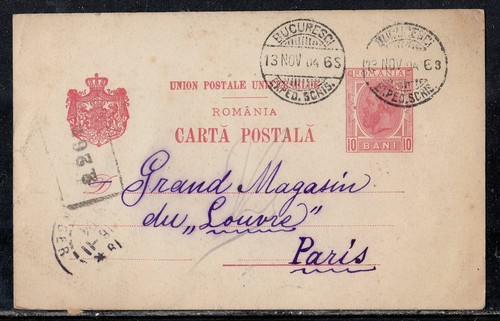 BUCURESCI
13 NOV 04 6S
EXPED. SCRIS.
BUCURESCI
13 NOV 04 6S
EXPED. SCRIS.
UNION POSTALE UNIVERSELLE
ROMÂNIA
ROMÂNIA
CARTĂ POSTALĂ
10 BANI 10
Grand Magasin
du „Louvre"
Paris